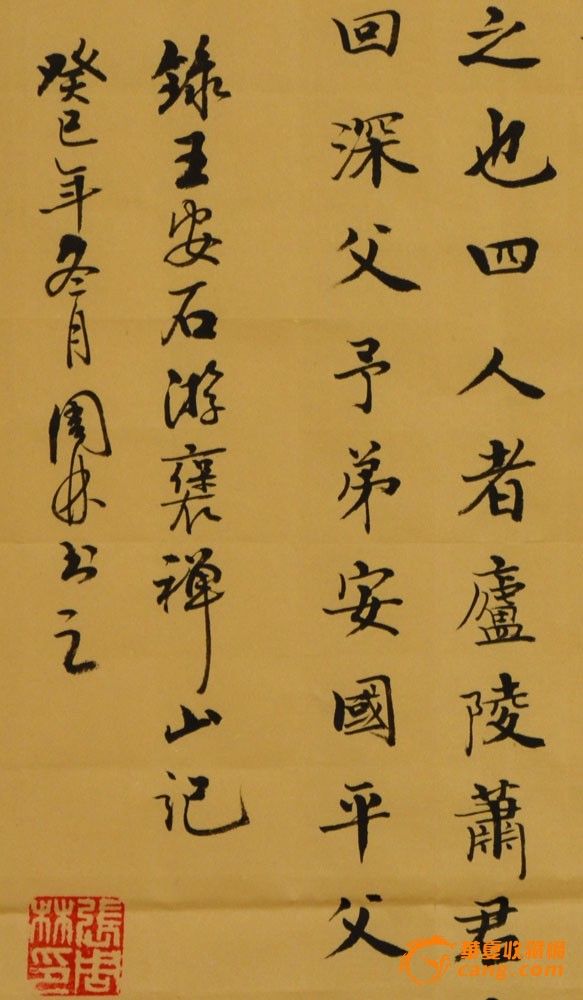 之也四人者廬陵蕭君
回深父予弟安國平父
錄王安石游褒禅山记
癸巳年冬月周林书之
張周林印
华夏收藏网
cang.com